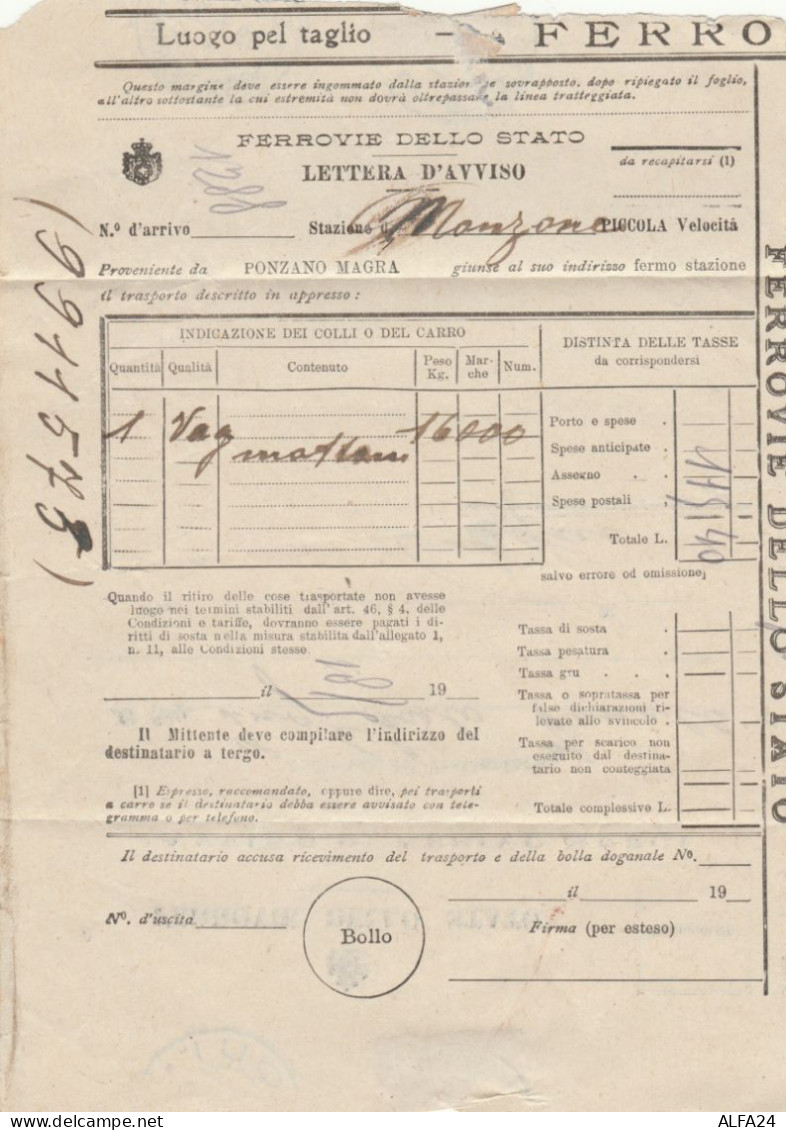 Luogo pel taglio — FERRO
Questo margine deve essere ingommato dalla stazione e sovrapposto, dopo ripiegato il foglio,
all'altro sottostante la cui estremità non dovrà oltrepassare la linea tratteggiata.
FERROVIE DELLO STATO
LETTERA D'AVVISO
da recapitarsi (1)
N.º d'arrivo 8821 Stazione di Manzano PICCOLA Velocità
Proveniente da PONZANO MAGRA giunse al suo indirizzo fermo stazione
il trasporto descritto in appresso:
INDICAZIONE DEI COLLI O DEL CARRO
DISTINTA DELLE TASSE
da corrispondersi
Quantità Qualità Contenuto Peso Kg. Mar-che Num.
1 Vag 16000
Porto e spese .
Spese anticipate .
Assegno . .
Spese postali .
Totale L.
salvo errore od omissione
(9941573)
FERROVIE DELLO STATO
Quando il ritiro delle cose trasportate non avesse
luogo nei termini stabiliti dall'art. 46, § 4, delle
Condizioni e tariffe, dovranno essere pagati i di-
ritti di sosta nella misura stabilita dall'allegato 1,
n. 11, alle Condizioni stesse.
il 19
Il Mittente deve compilare l'indirizzo del
destinatario a tergo.
[1] Espresso, raccomandato, oppure dire, pei trasporti
a carro se il destinatario debba essere avvisato con tele-
gramma o per telefono.
Tassa di sosta .
Tassa pesatura .
Tassa gru . . .
Tassa o sopratassa per
false dichiarazioni ri-
levate allo svincolo .
Tassa per scarico non
eseguito dal destina-
tario non conteggiata
Totale complessivo L.
Il destinatario accusa ricevimento del trasporto e della bolla doganale Nº.
il 19
Nº. d'uscita
Bollo
Firma (per esteso)
© delcampe.net
ALFA24